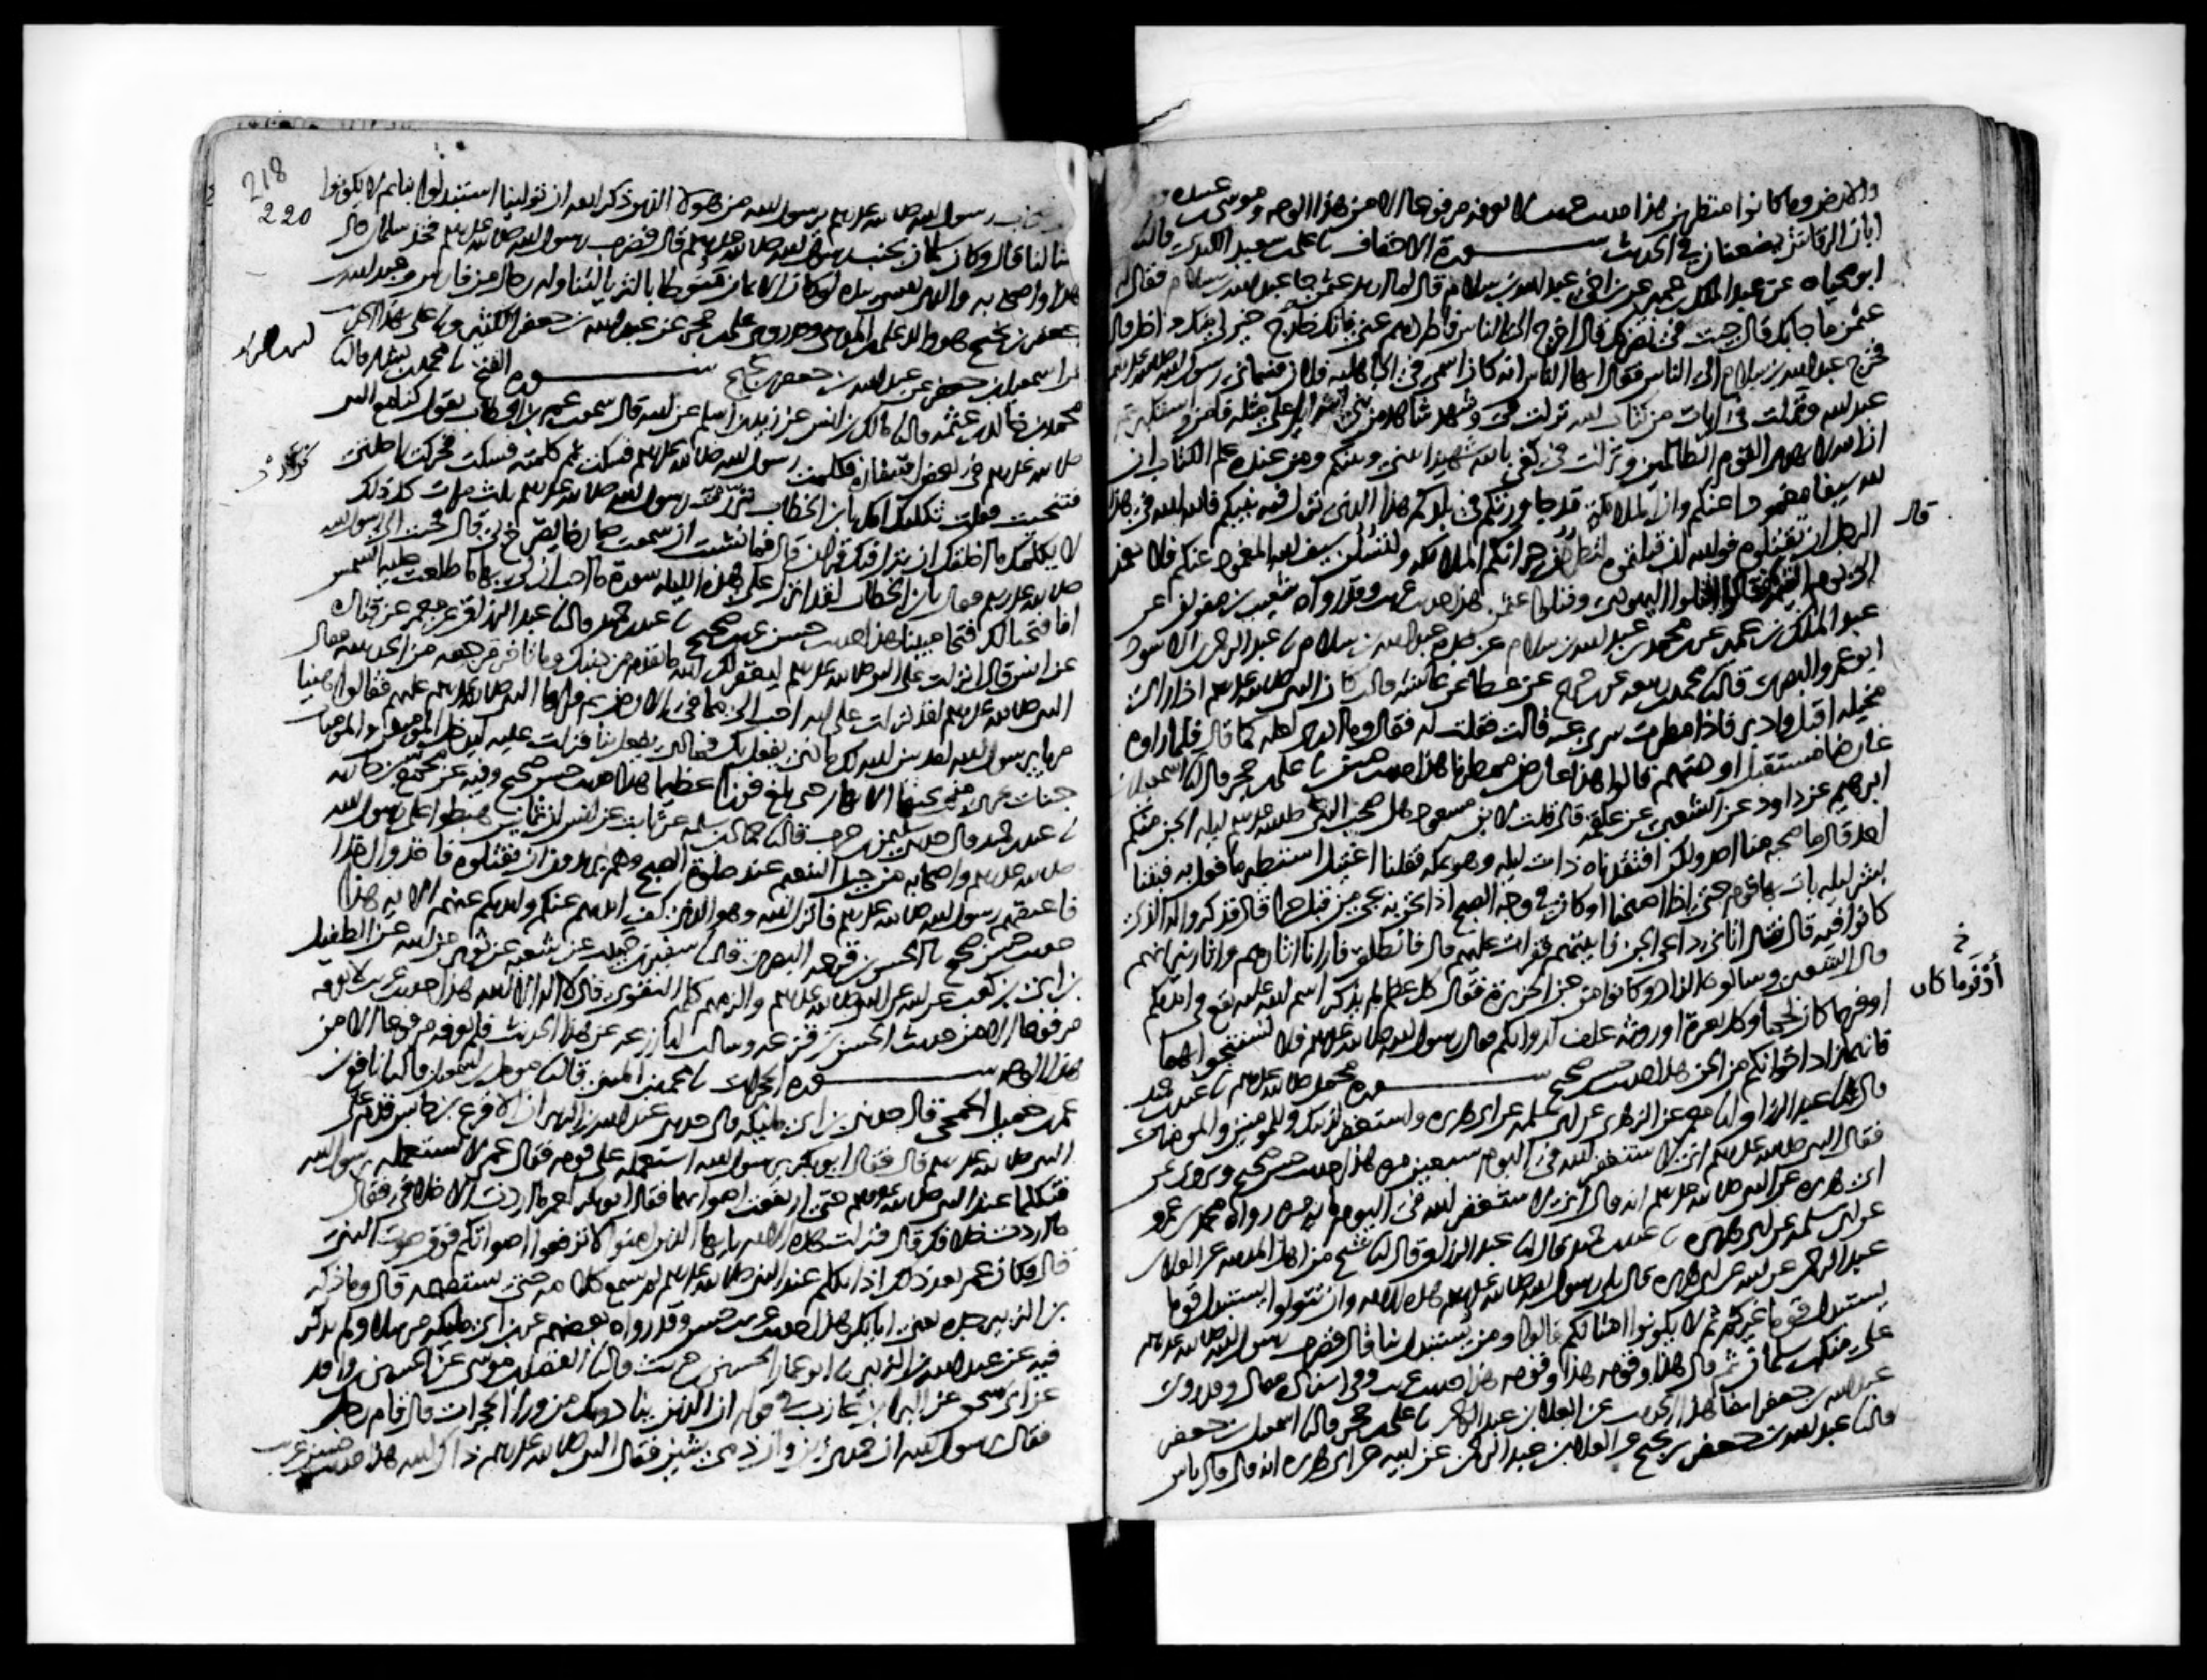 والارض وما كانوا منظرين هذا حديث غريب لا نعرفه مرفوعا الا من هذا الوجه وموسى بن عبيدة و
ابان الرقاشي يضعفان في الحديث سورة الاحقاف نا علي بن سعيد الكندي قال نا
ابو محياه عن عبد الملك بن عمير عن ابن اخي عبد الله بن سلام قال لما اريد عثمن جا عبد الله بن سلام فقال له
عثمن ما جا بك قال جيت في نصرتك قال اخرج الى الناس فاطردهم عني فانك خارج خير لي منك داخل قال
فخرج عبد الله بن سلام الى الناس فقال ايها الناس انه كان اسمي في الجاهلية فلان فسماني رسول الله صلى الله عليه وسلم
عبد الله ونزلت في ايات من كتاب الله نزلت في وشهد شاهد من بني اسرائيل على مثله فامن واستكبرتم
ان الله لا يهدي القوم الظالمين ونزلت في كفى بالله شهيدا بيني وبينكم ومن عنده علم الكتاب ان
لله سيفا مغمودا عنكم وان الملايكة قد جاورتكم في بلدكم هذا الذي نزل فيه نبيكم فالله الله في هذا
قال
الرجل ان تقتلوه فوالله لئن قتلتموه لتطردن جيرانكم الملايكة ولتسلن سيف الله المغمود عنكم فلا يغمد
الى يوم القيمة قالوا اقتلوا اليهودي وقتلوا عثمن هذا حديث غريب وقد رواه شعيب بن صفوان عن
عبد الملك بن عمير عن ابن محمد بن عبد الله بن سلام عن جده عبد الله بن سلام نا عبد الرحمن بن الاسود
ابو عمرو البصري قال نا محمد بن ربيعة عن ابن جريج عن عطا عن عائشة قالت كان النبي صلى الله عليه وسلم اذا راى
مخيلة اقبل وادبر فاذا مطرت سري عنه قالت فقلت له فقال وما ادري لعله كما قال فلما راوه
عارضا مستقبل اوديتهم قالوا هذا عارض ممطرنا هذا حديث حسن نا علي بن حجر قال انا اسمعيل بن
ابرهيم عن داود عن الشعبي عن علقمة قال قلت لابن مسعود هل صحب النبي صلى الله عليه وسلم ليلة الجن منكم
احد قال ما صحبه منا احد ولكن افتقدناه ذات ليلة وهو بمكة فقلنا اغتيل استطير ما فعل به فبتنا
بشر ليلة بات بها قوم حتى اذا اصبحنا او كان في وجه الصبح اذا نحن به يجي من قبل حرا قال فذكروا له الذي
كانوا فيه قال فقال اتاني داعي الجن فاتيتهم فقرات عليهم قال فانطلق فارانا اثارهم واثار نيرانهم
قال الشعبي وسالوه الزاد وكانوا من جن الجزيرة فقال كل عظم لم يذكر اسم الله عليه يقع في ايديكم
خ
أوْفَرَ ما كان
اوفر ما كان لحما وكل بعرة او روثة علف لدوابكم فقال رسول الله صلى الله عليه وسلم فلا تستنجوا بهما
فانهما زاد اخوانكم من الجن هذا حديث حسن صحيح سورة محمد صلى الله عليه وسلم نا عبد بن حميد
قال نا عبد الرزاق نا معمر عن الزهري عن ابي سلمة عن ابي هريرة واستغفر لذنبك وللمومنين والمومنات
فقال النبي صلى الله عليه وسلم اني لاستغفر الله في اليوم سبعين مرة هذا حديث حسن صحيح ويروى عن
ابي هريرة عن النبي صلى الله عليه وسلم انه قال اني لاستغفر الله في اليوم ماية مرة رواه محمد بن عمرو
عن ابي سلمة عن ابي هريرة نا عبد بن حميد قال نا عبد الرزاق قال نا شيخ من اهل المدينة عن العلا بن
عبد الرحمن عن ابيه عن ابي هريرة قال تلا رسول الله صلى الله عليه وسلم هذه الاية وان تتولوا يستبدل قوما
يستبدل قوما غيركم ثم لا يكونوا امثالكم قالوا ومن يستبدل بنا قال فضرب رسول الله صلى الله عليه وسلم
على منكب سلمان ثم قال هذا وقومه هذا وقومه هذا حديث غريب وفي اسناده مقال وقد روى
عبد الله بن جعفر ايضا هذا الحديث عن العلا بن عبد الرحمن نا علي بن حجر قال نا اسمعيل بن جعفر
قال نا عبد الله بن جعفر بن نجيح عن العلا بن عبد الرحمن عن ابيه عن ابي هريرة انه قال قال ناس
218
220
من اصحاب رسول الله صلى الله عليه وسلم يرسول الله من هولا الذين ذكر الله ان تولينا استبدلوا بنا ثم لا يكونوا
امثالنا قال وكان سلمان بجنب رسول الله صلى الله عليه وسلم قال فضرب رسول الله صلى الله عليه وسلم فخذ سلمان قال
هذا واصحابه والذي نفسي بيده لو كان الايمان منوطا بالثريا لتناوله رجال من فارس وعبد الله بن
جعفر بن نجيح هو والد علي بن المديني وقد روى علي بن حجر عن عبد الله بن جعفر الكثير ونا علي بهذا الحديث
عن اسمعيل بن جعفر عن عبد الله بن جعفر بن نجيح سورة الفتح نا محمد بن بشار قال نا
محمد بن خالد بن عثمة قال نا مالك بن انس عن زيد بن اسلم عن ابيه قال سمعت عمر بن الخطاب يقول كنا مع النبي
صلى الله عليه وسلم في بعض اسفاره فكلمت رسول الله صلى الله عليه وسلم فسكت ثم كلمته فسكت فحركت راحلتي
فتنحيت فقلت ثكلتك امك يا بن الخطاب نزرت رسول الله صلى الله عليه وسلم ثلث مرات كل ذلك
لا يكلمك ما اخلقك ان ينزل فيك قران قال فما نشبت ان سمعت صارخا يصرخ بي قال فجيت الى رسول الله
صلى الله عليه وسلم فقال يا بن الخطاب لقد انزل علي هذه الليلة سورة ما احب ان لي بها ما طلعت عليه الشمس
انا فتحنا لك فتحا مبينا هذا حديث حسن غريب صحيح نا عبد بن حميد قال نا عبد الرزاق عن معمر عن قتادة
عن انس قال انزلت على النبي صلى الله عليه وسلم ليغفر لك الله ما تقدم من ذنبك وما تاخر مرجعه من الحديبية فقال
النبي صلى الله عليه وسلم لقد انزلت علي اية احب الي مما في الارض ثم قراها النبي صلى الله عليه وسلم عليهم فقالوا هنيا
مريا يرسول الله لقد بين الله لك ماذا يفعل بك فماذا يفعل بنا فنزلت عليه ليدخل المومنين والمومنات
جنات تجري من تحتها الانهار حتى بلغ فوزا عظيما هذا حديث حسن صحيح وفيه عن مجمع بن جارية
نا عبد بن حميد قال حدثني سليمن بن حرب قال نا حماد بن سلمة عن ثابت عن انس ان ثمانين هبطوا على رسول الله
صلى الله عليه وسلم واصحابه من جبل التنعيم عند صلوة الصبح وهم يريدون ان يقتلوه فاخذوا اخذا
فاعتقهم رسول الله صلى الله عليه وسلم فانزل الله وهو الذي كف ايديهم عنكم وايديكم عنهم الاية هذا
حديث حسن صحيح نا الحسن بن قزعة البصري قال نا سفين بن حبيب عن شعبة عن ثوير عن ابيه عن الطفيل
بن ابي بن كعب عن ابيه عن النبي صلى الله عليه وسلم والزمهم كلمة التقوى قال لا اله الا الله هذا حديث غريب لا نعرفه
مرفوعا الا من حديث الحسن بن قزعة وسالت ابا زرعة عن هذا الحديث فلم يعرفه مرفوعا الا من
هذا الوجه سورة الحجرات نا محمد بن المثنى قال نا مومل بن اسمعيل قال نا نافع بن
عمر بن جميل الجمحي قال حدثني ابن ابي مليكة قال حدثني عبد الله بن الزبير ان الاقرع بن حابس قدم على
النبي صلى الله عليه وسلم قال فقال ابو بكر يرسول الله استعمله على قومه فقال عمر لا تستعمله يرسول الله
فتكلما عند النبي صلى الله عليه وسلم حتى ارتفعت اصواتهما فقال ابو بكر لعمر ما اردت الا خلافي فقال
ما اردت خلافك قال فنزلت هذه الاية يايها الذين امنوا لا ترفعوا اصواتكم فوق صوت النبي
قال فكان عمر بعد ذلك اذا تكلم عند النبي صلى الله عليه وسلم لم يسمع كلامه حتى يستفهمه قال وما ذكر
بن الزبير جده يعني ابا بكر هذا حديث غريب حسن وقد رواه بعضهم عن ابن ابي مليكة مرسلا ولم يذكر
فيه عن عبد الله بن الزبير نا ابو عمار الحسين بن حريث قال نا الفضل بن موسى عن الحسين بن واقد
عن ابي اسحق عن البرا بن عازب في قوله ان الذين ينادونك من ورا الحجرات قال قام رجل
فقال يرسول الله ان حمدي زين وان ذمي شين فقال النبي صلى الله عليه وسلم ذاك الله هذا حديث حسن غريب